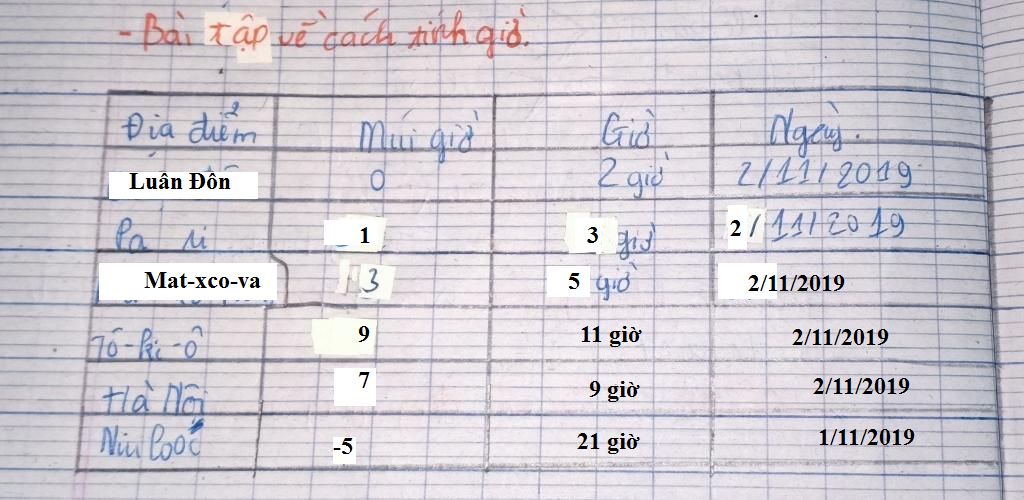 - Bài tập về cách tính giờ.
Địa điểm Múi giờ Giờ Ngày.
Luân Đôn 0 2 giờ 2/11/2019
Pa ri 1 3 giờ 2/11/2019
Mat-xco-va 3 5 giờ 2/11/2019
Tô-ki-ô 9 11 giờ 2/11/2019
Hà Nội 7 9 giờ 2/11/2019
Niu Looc -5 21 giờ 1/11/2019